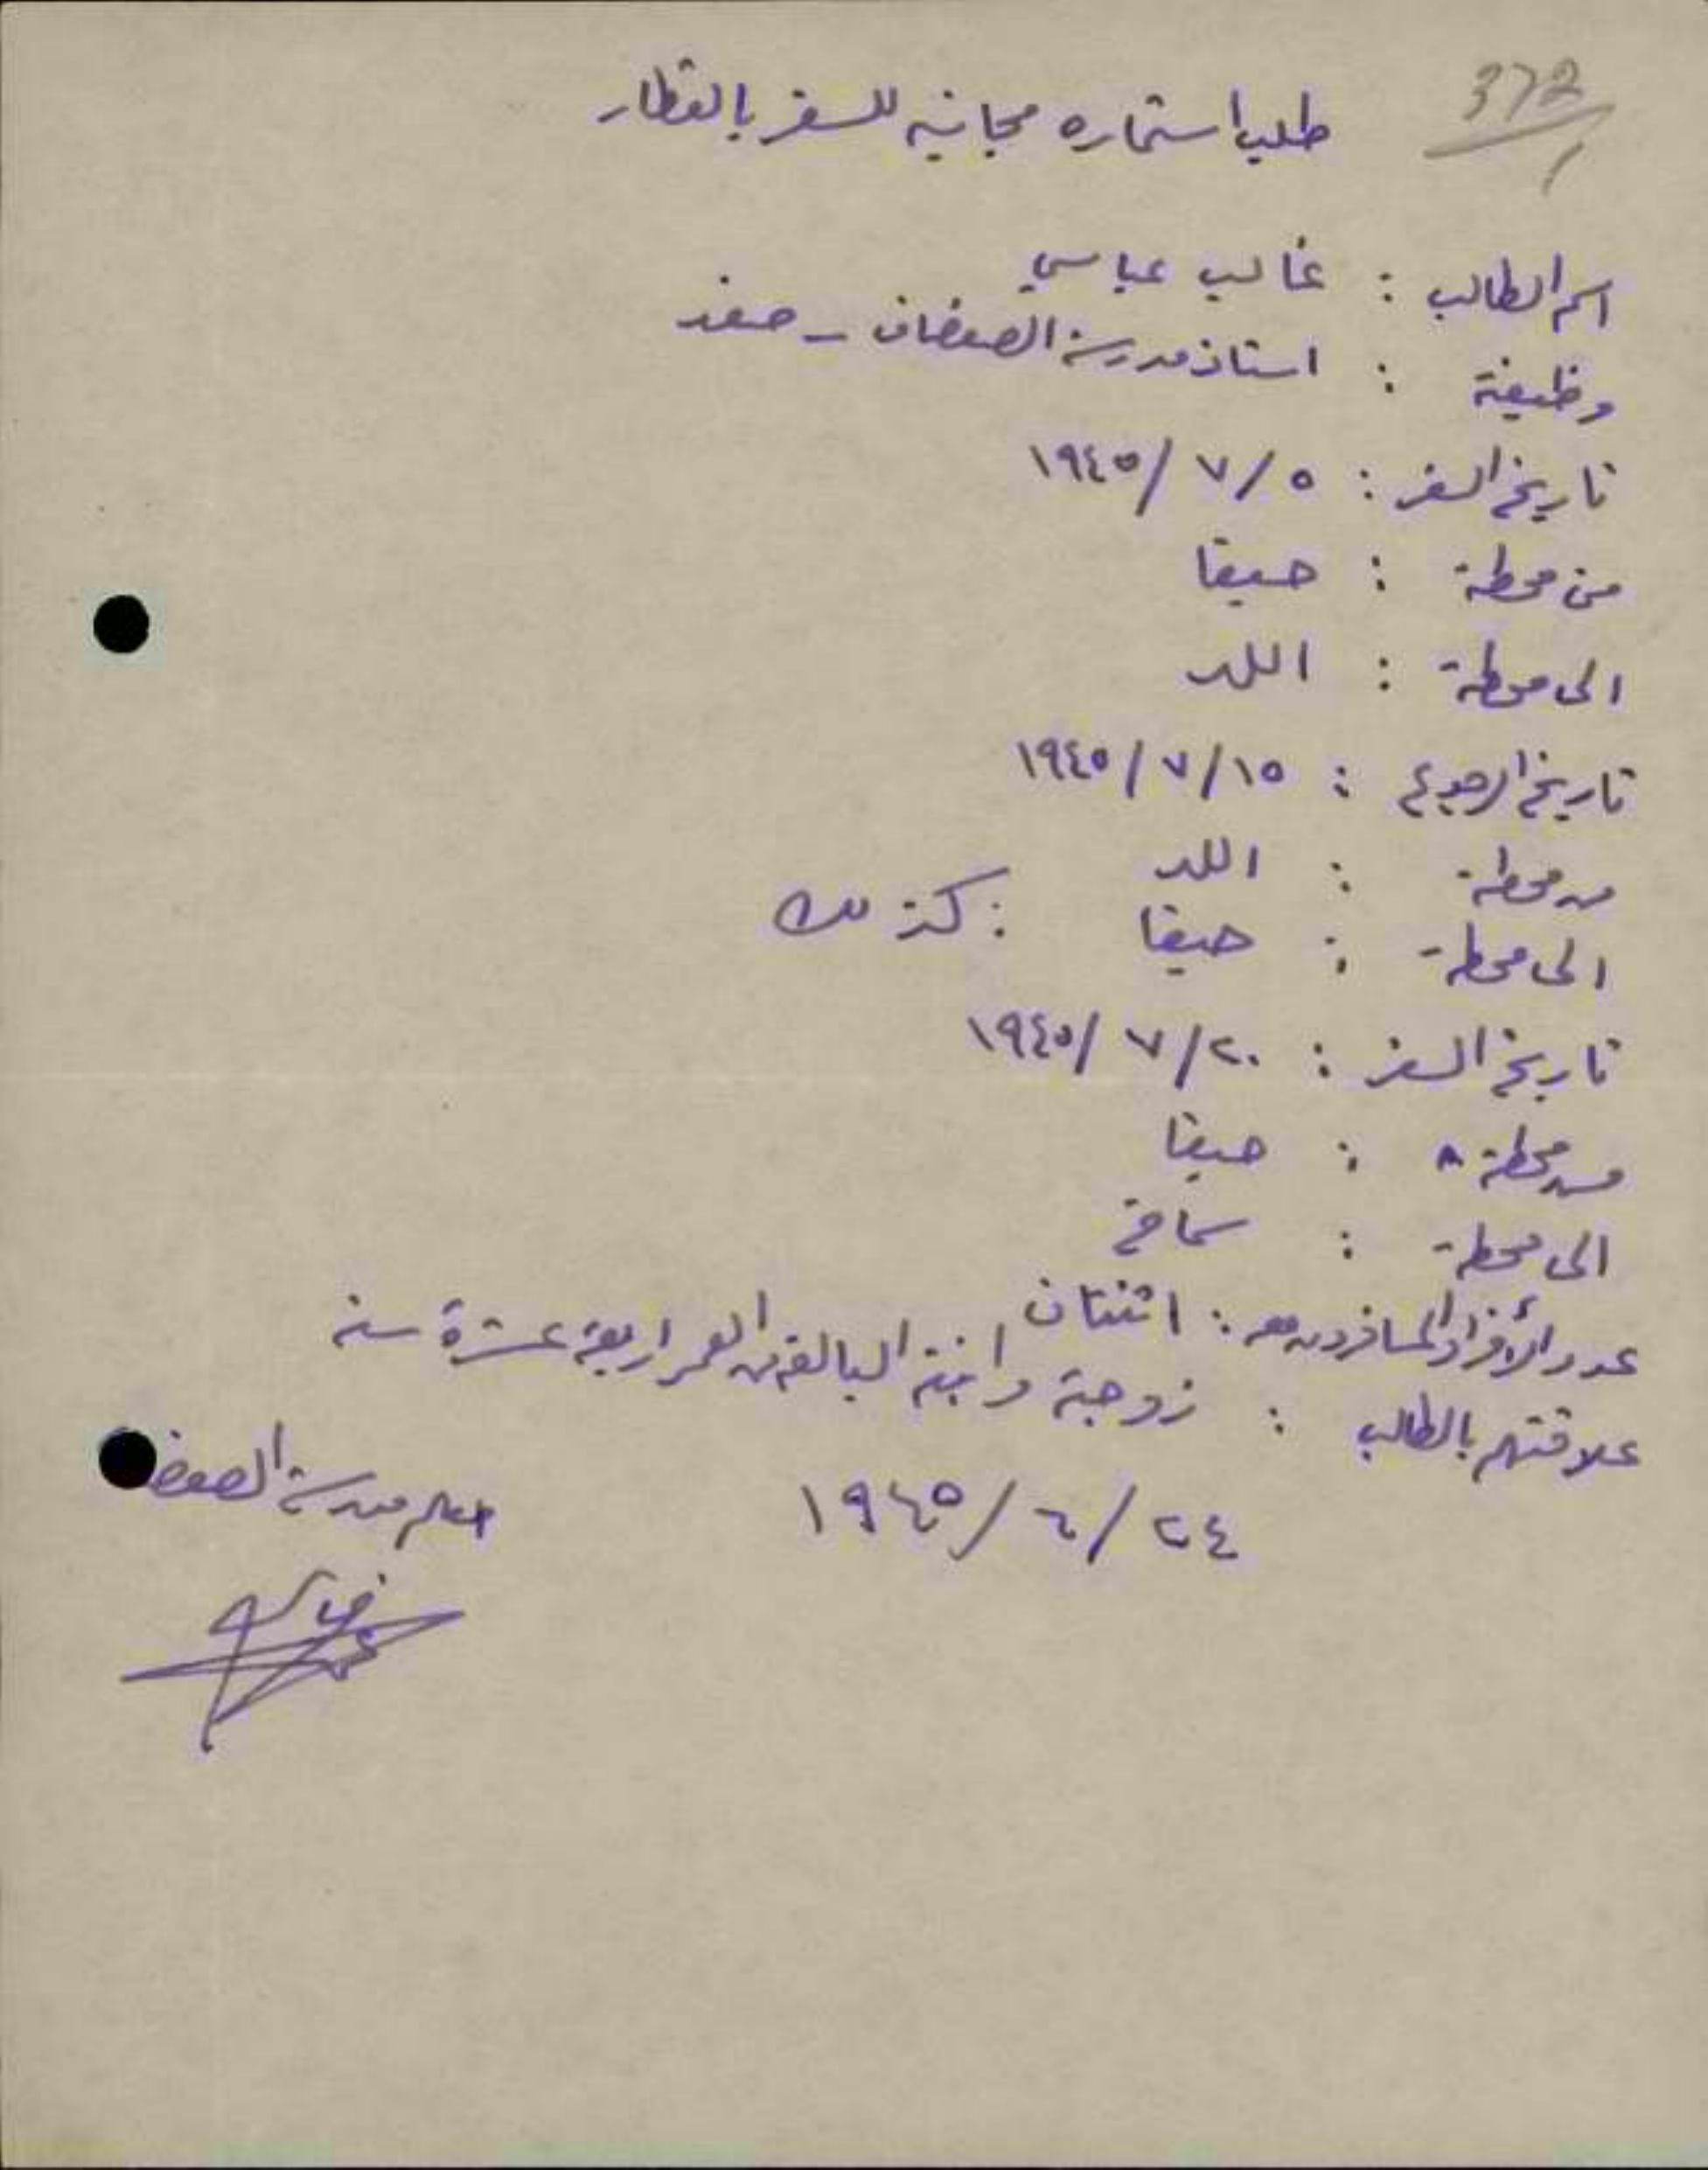 372
1
طلب استماره مجانيه للسفر بالقطار
اسم الطالب : غالب عباسي
وظيفته : استاذ مدرسة الصفصاف - صفد
تاريخ السفر : ٥ / ٧ / ١٩٤٥
من محطة : حيفا
الى محطة : اللد
تاريخ الرجوع : ١٥ / ٧ / ١٩٤٥
من محطة : اللد
الى محطة : حيفا : كذلك
تاريخ السفر : ٢٠ / ٧ / ١٩٤٥
من محطة : حيفا
الى محطة : سماخ
عدد الأفراد المسافرون معه : اثنتان
علاقتهم بالطالب : زوجته وابنته البالغة من العمر اربعة عشرة سنه
٢٤ / ٦ / ١٩٤٥
معلم مدرسة الصفصا